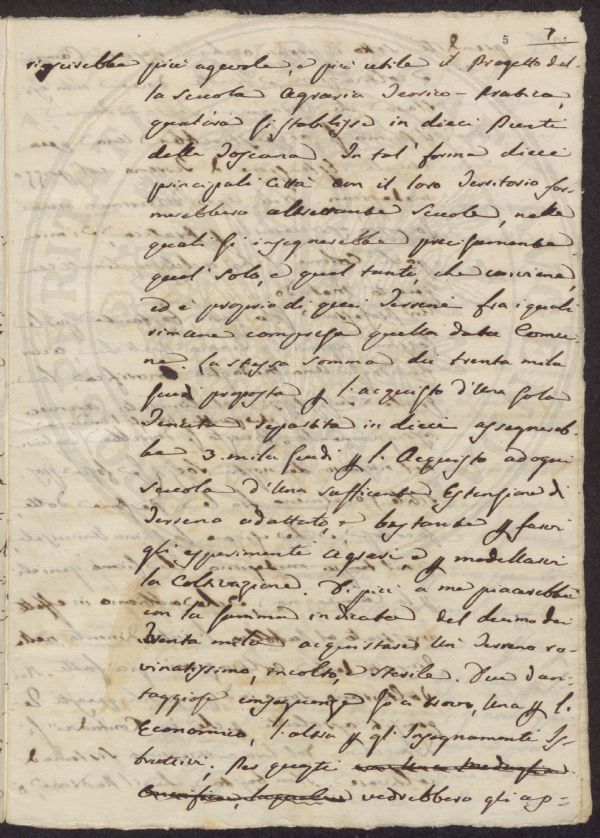 5 7.
riuscirebbe più agevole, e più utile il Progetto del-
la Scuola Agraria Teorico-Pratica,
qualora si stabilisse in dieci Punti
della Toscana. In tal' forma dieci
principali Città con il loro Territorio for-
merebbero altrettante Scuole, nelle
quali si insegnerebbe precisamente
quel solo, e quel tanto, che conviene,
ed è proprio di quei Terreni fra i quali
rimane compresa quella data Comu-
ne. La stessa Somma di trenta mila
Scudi proposta p l'acquisto d'Una Sola
Tenuta repartita in dieci assegnereb-
be 3. mila Scudi p l'Acquisto ad ogni
Scuola d'Una Sufficente Estensione di
Terreno adattato, e bastante p farvi
gli esperimenti Agrari, e p modellarvi
la Coltivazione. Di più a me piacerebbe
con la Somma indicata del decimo dei
Trenta mila acquistare Un Terreno ro-
vinatissimo, incolto, e sterile. Due Van-
taggiose conseguenze io ci trovo, Una p l'
Economico, l'altra p gl'Insegnamenti Is-
truttivi; Per questi
vedrebbero gli ap-